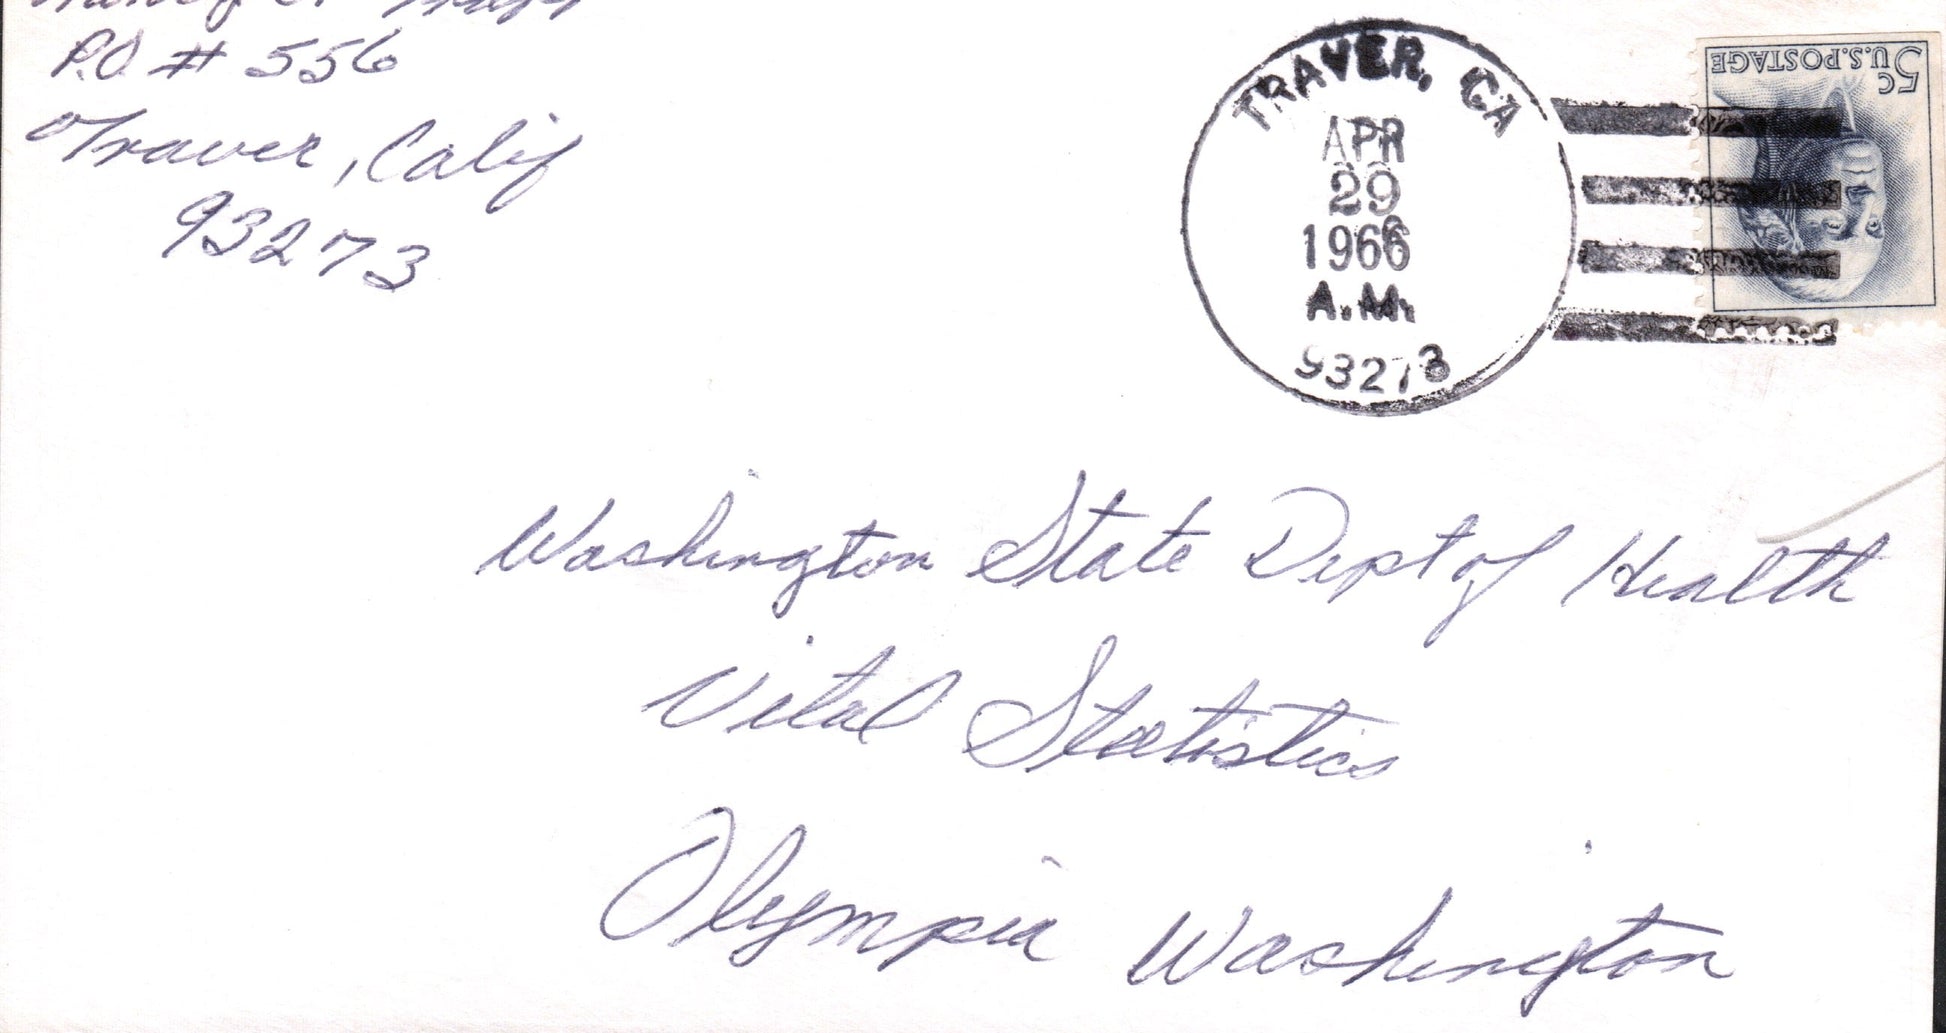 P.O. # 556
Traver, Calif
93273
TRAVER, CA
APR
29
1966
A.M.
93273
5c
U.S. POSTAGE
Washington State Dept of Health
Vital Statistics
Olympia Washington